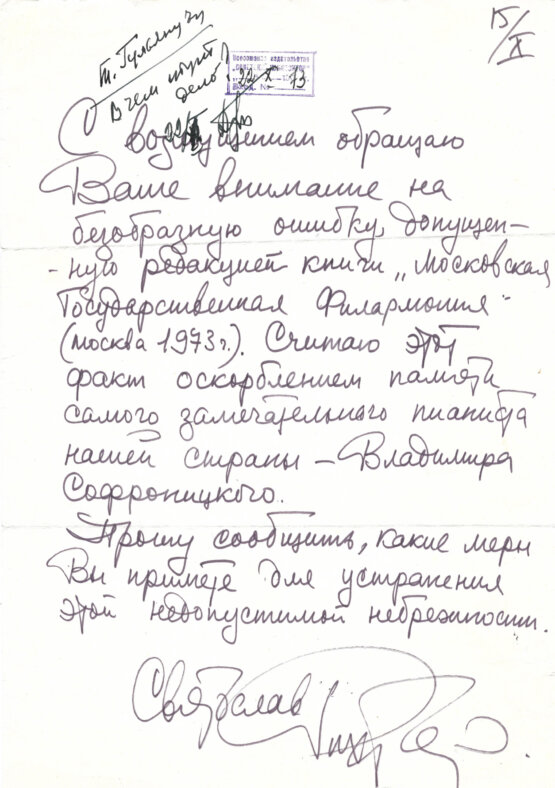 15/X
т. Гульянцу
В чем тут
дело?
22/X
Всесоюзное издательство
22 X 73
С возмущением обращаю
Ваше внимание на
безобразную ошибку, допущен-
-ную редакцией книги „Московская
Государственная Филармония"
(Москва 1973 г.). Считаю этот
факт оскорблением памяти
самого замечательного пианиста
нашей страны – Владимира
Софроницкого.
Прошу сообщить, какие меры
Вы примете для устранения
этой недопустимой небрежности.
Святослав Рихтер.